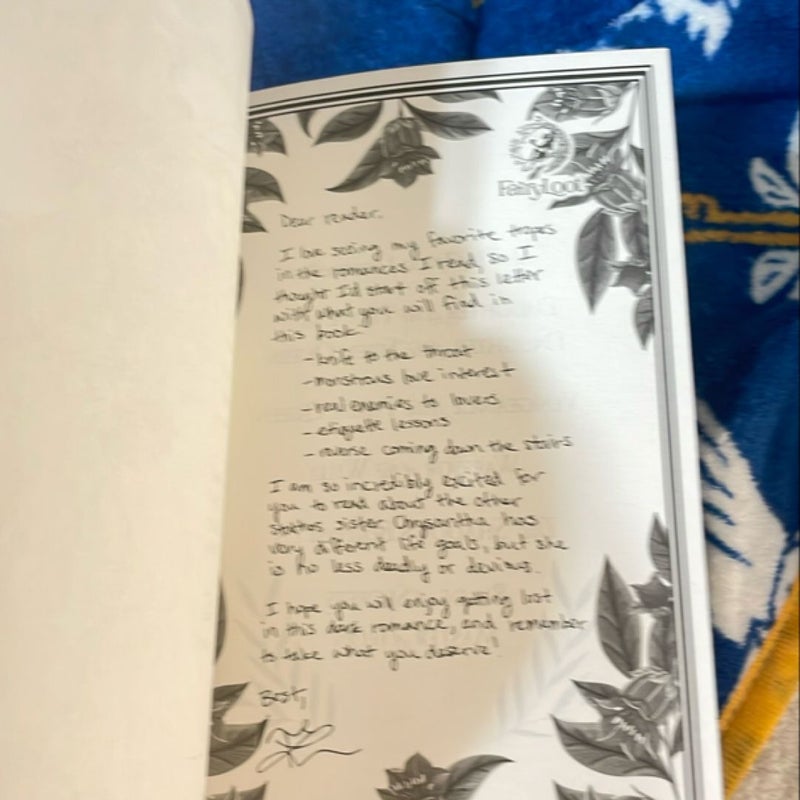 FairyLoot
Dear reader,
I love seeing my favorite tropes
in the romances I read, so I
thought I'd start off this letter
with what you will find in
this book
-knife to the throat
-monstrous love interest
-real enemies to lovers
-etiquette lessons
-reverse coming down the stairs
I am so incredibly excited for
you to read about the other
stathos sister. Chrysantha has
very different life goals, but she
is no less deadly or devious.
I hope you will enjoy getting lost
in this dark romance, and remember
to take what you deserve!
Best,